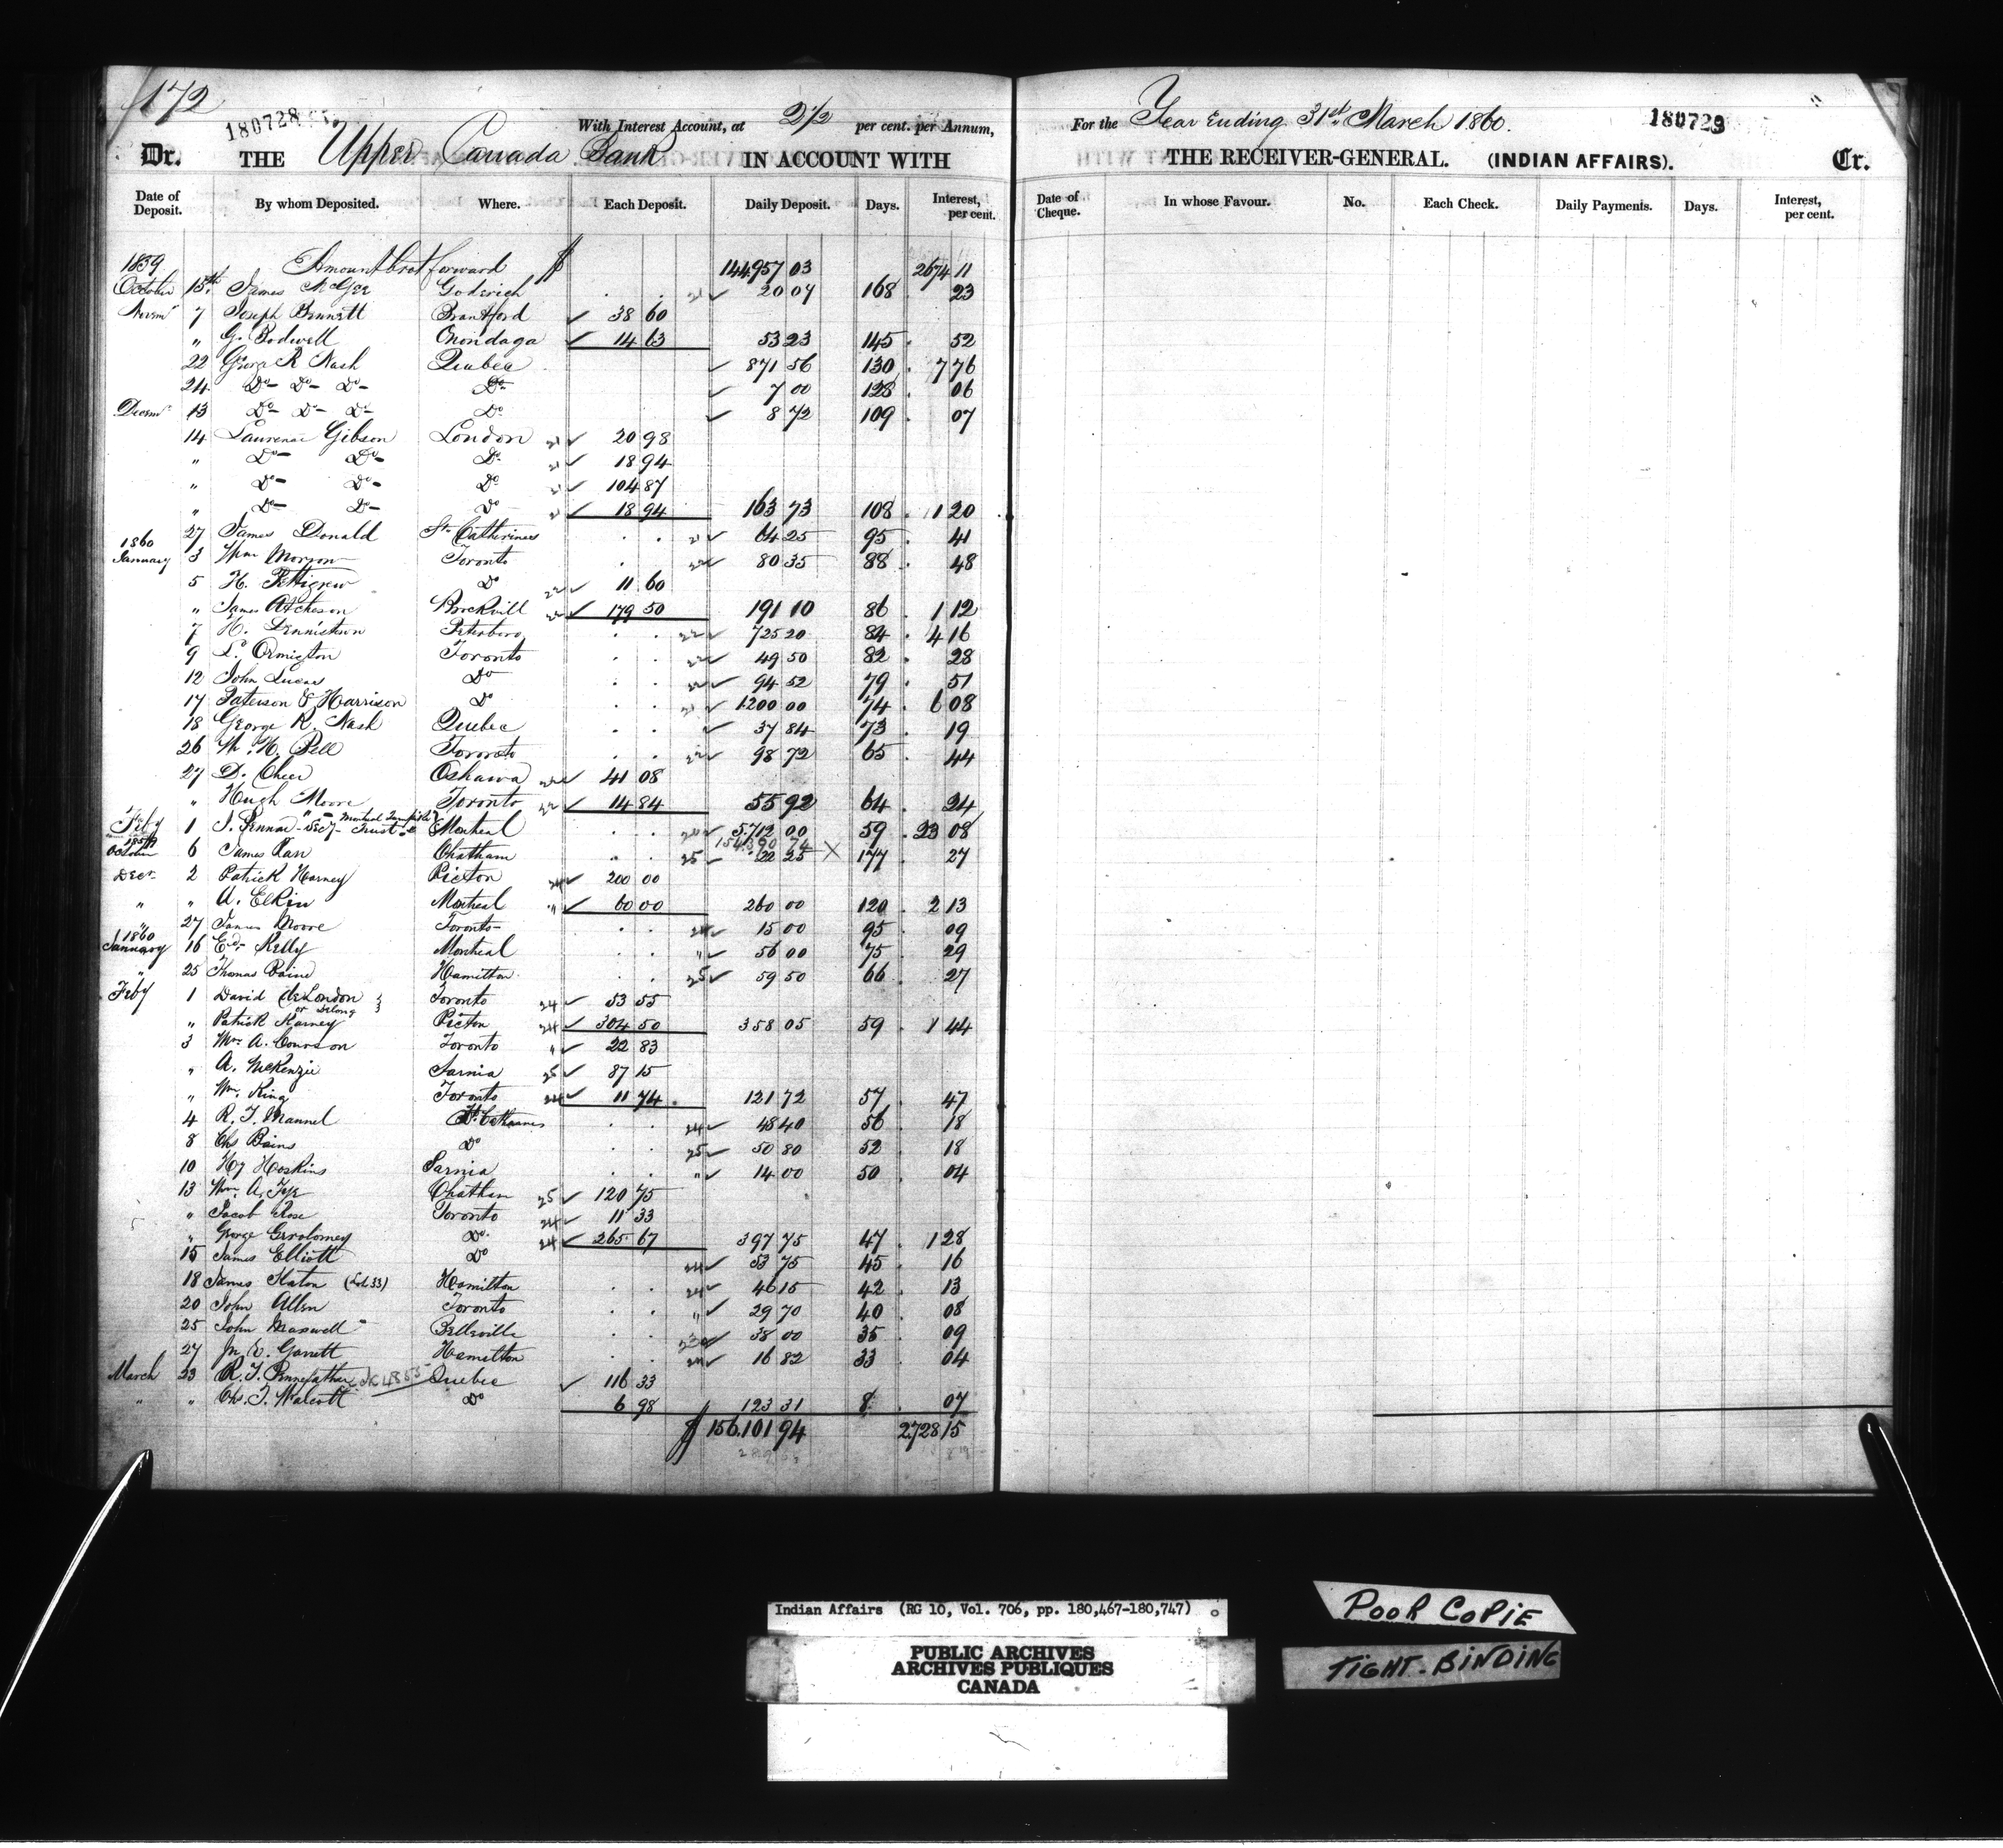 172
180728
2 1/2
With Interest Account, at per cent. per Annum,
Dr. THE Upper Canada Bank IN ACCOUNT WITH
Date of Deposit. By whom Deposited. Where. Each Deposit. Daily Deposit. Days. Interest, per cent.
1859 Amount brot forward $ 144957 03 2674 11
October 15th James McGee Goderich 21 ✓ 20 04 168 23
Novemr 7 Joseph Bennett Brantford ✓ 38 60
" G. Bodwell Onondaga ✓ 14 63 53 23 145 52
22 George R Nash Quebec ✓ 871 56 130 7 76
24 Do Do Do Do ✓ 7 00 128 06
Decemr 13 Do Do Do Do ✓ 8 72 109 07
14 Laurence Gibson London 21 ✓ 20 98
" Do Do Do 21 ✓ 18 94
" Do Do Do 21 ✓ 104 87
" Do Do Do 21 ✓ 18 94 163 73 108 1 20
27 James Donald St Catherines 21 ✓ 64 25 95 41
1860
January 3 Wm Morson Toronto 22 ✓ 80 35 88 48
5 H. Pettigrew Do 22 ✓ 11 60
" James Atcheson Brockvill 22 ✓ 179 50 191 10 86 1 12
7 H. Dennistown Peterboro 22 ✓ 725 20 84 4 16
9 Ormiston Toronto 22 ✓ 49 50 82 28
12 John Lucas Do 22 ✓ 94 52 79 51
17 Paterson & Harrison Do 21 ✓ 1200 00 74 6 08
18 George R. Nash Quebec ✓ 37 84 73 19
26 W. H. Pell Toronto 22 ✓ 98 72 65 44
27 D. Cheer Oshawa 22 ✓ 41 08
" Hugh Moore Toronto 22 ✓ 14 84 55 92 64 24
Feby 1 J. Pennar - Secy - Montreal Turnpike Trust Montreal 20 ✓ 5.712 00 59 23 08
154.390 74
1859
October 6 James Carr Chatham 25 ✓ 22 25 X 177 27
Decr 2 Patrick Harney Picton 24 ✓ 200 00
" " A. Elkin Montreal " ✓ 60 00 260 00 120 2 13
" 27 James Moore Toronto 24 ✓ 15 00 95 09
1860
January 16 Edr Kelly Montreal " ✓ 56 00 75 29
" 25 Thomas Baine Hamilton 25 ✓ 59 50 66 27
Feby 1 David deLondon Toronto 24 ✓ 53 55
or Delong
" Patrick Harney Picton 24 ✓ 304 50 358 05 59 1 44
3 Mrs A. Courson Toronto " ✓ 22 83
" A. McKenzie Sarnia 25 ✓ 87 15
" Wm. King Toronto 24 ✓ 11 74 121 72 57 47
4 R. T. Mannel St. Catharines 24 ✓ 48 40 56 18
8 Chs Bains Do 25 ✓ 50 80 52 18
10 Hy Hoskins Sarnia " ✓ 14 00 50 04
13 Wm. A. Fye Chatham 25 ✓ 120 75
" Jacob Rose Toronto 24 ✓ 11 33
" George Do. 24 ✓ 265 67 397 75 47 1 28
15 James Elliott Do 24 ✓ 53 75 45 16
18 James Slaton (Lot 33) Hamilton 24 ✓ 46 15 42 13
20 John Allen Toronto " ✓ 29 70 40 08
25 John Maxwell Belleville ✓ 38 00 35 09
27 Garrett Hamilton 24 ✓ 16 82 33 04
March 23 R. T. Pennefather Quebec ✓ 116 33
" " Chs. T. Walcott Do 6 98 123 31 8 07
$ 156.101 94 2.728 15
For the Year Ending 31st March 1860.
180729
THE RECEIVER-GENERAL. (INDIAN AFFAIRS). Cr.
Date of Cheque. In whose Favour. No. Each Check. Daily Payments. Days. Interest, per cent.
Indian Affairs (RG 10, Vol. 706, pp. 180,467-180,747)
PUBLIC ARCHIVES
ARCHIVES PUBLIQUES
CANADA
POOR COPIE
TIGHT-BINDING